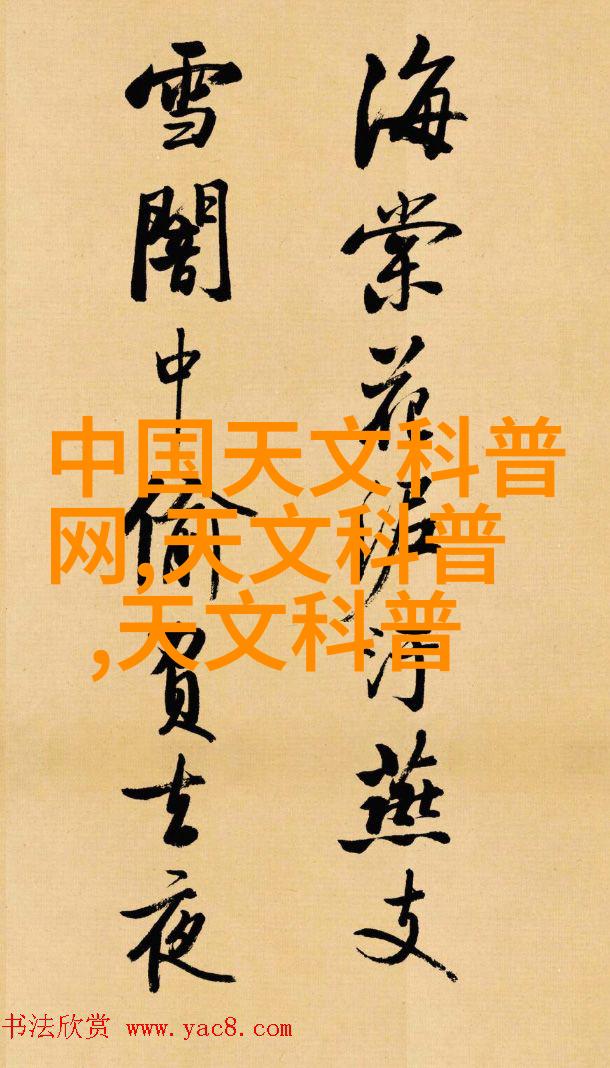 海棠花泥污燕支
雪闇中偷負去夜
中国天文科普
网,天文科普
,天文科普
书法欣赏 www.yac8.com